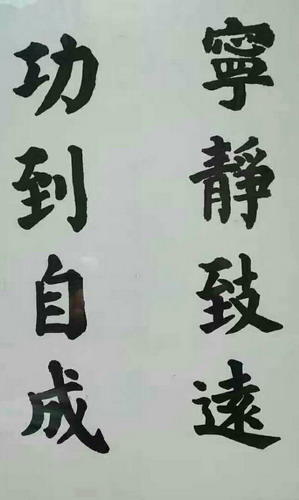 寧靜致遠
功到自成